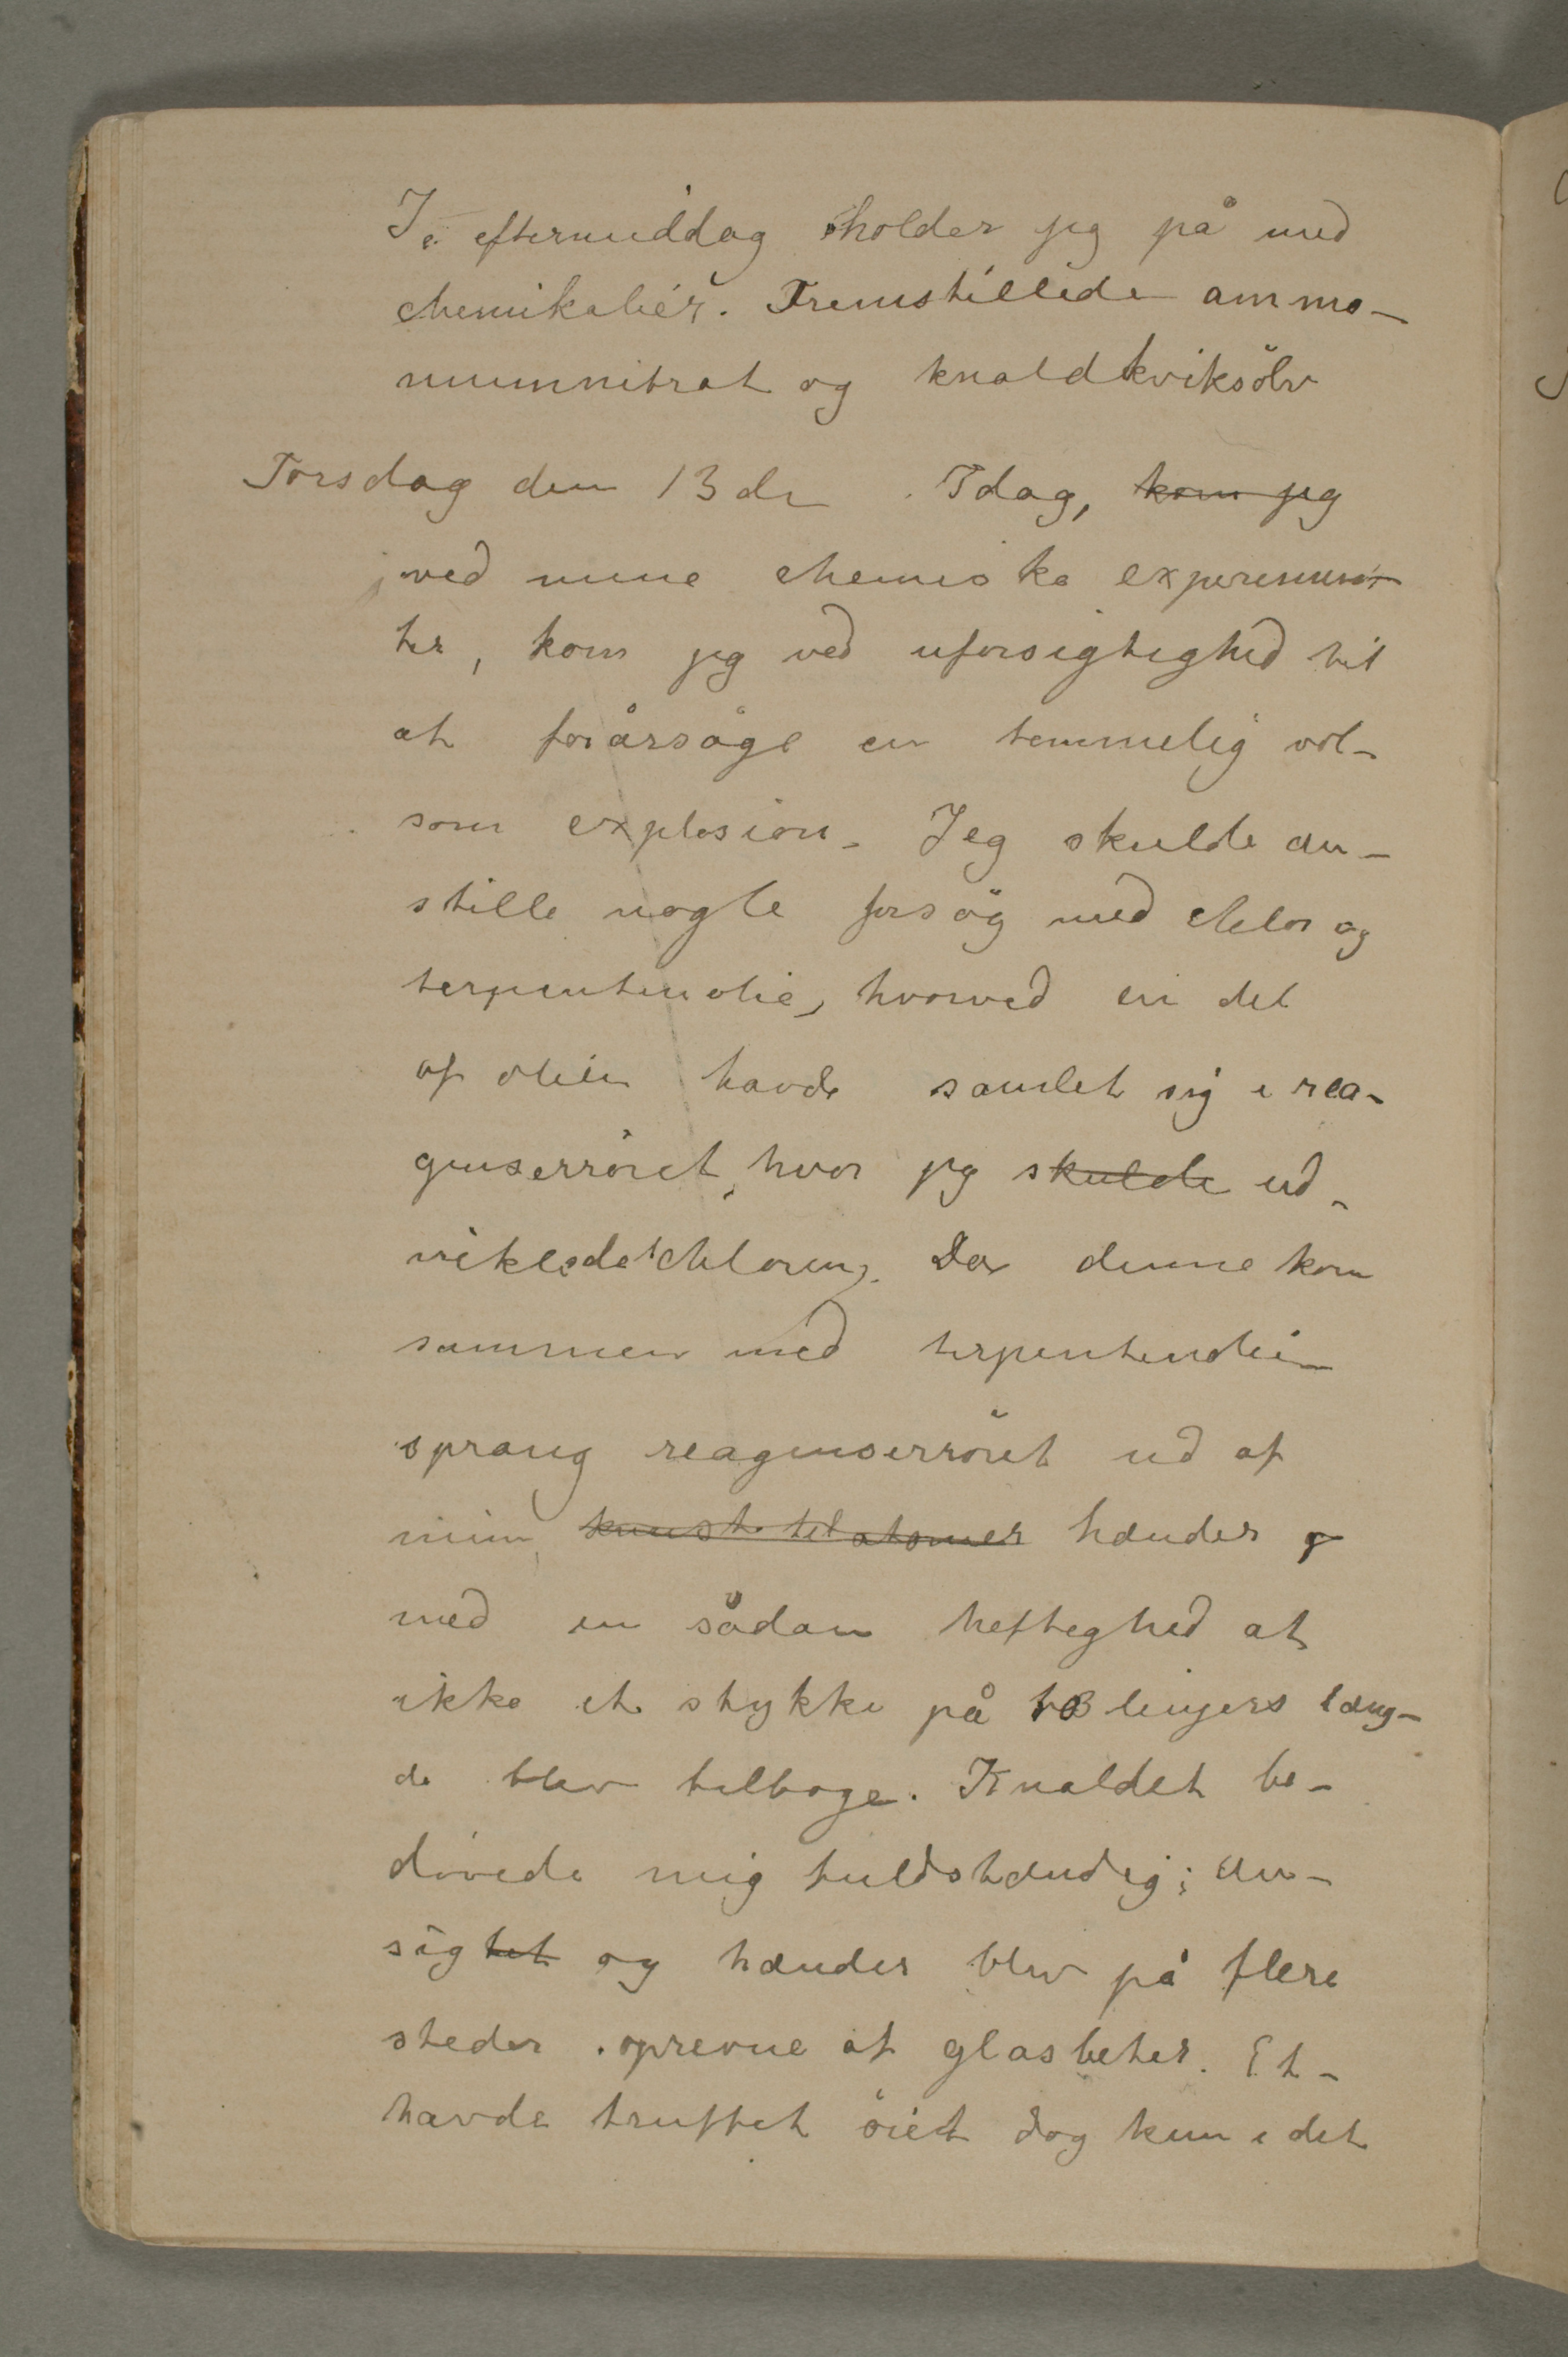 I eftermiddag holder jeg på med
chemikalier. Fremstillede ammo-
niumnitrat og knaldkviksölv
Torsdag den 13de. Idag, kom jeg
ved mine chemiske experimen-
ter, kom jeg ved uforsigtighed til
at forårsage en temmelig vol-
som explosion. Jeg skulde an-
stille nogle forsög med chlor og
terpentinolie, hvorved en del
af olien havde samlet sig i rea-
genserröret, hvor jeg skulde ud-
viklede chloren. Da denne kom
sammen med terpentinolien
sprang reagenserröret ud af
mine knust til atomer hænder
med en sådan heftighed at
ikke et stykke på to lingers læng-
de blev tilbage. Knaldet be-
dövede mig fuldstændig; an-
sigtet og hænder blev på flere
steder oprevne af glasbeter. Et
havde truffet öiet dog kun i det